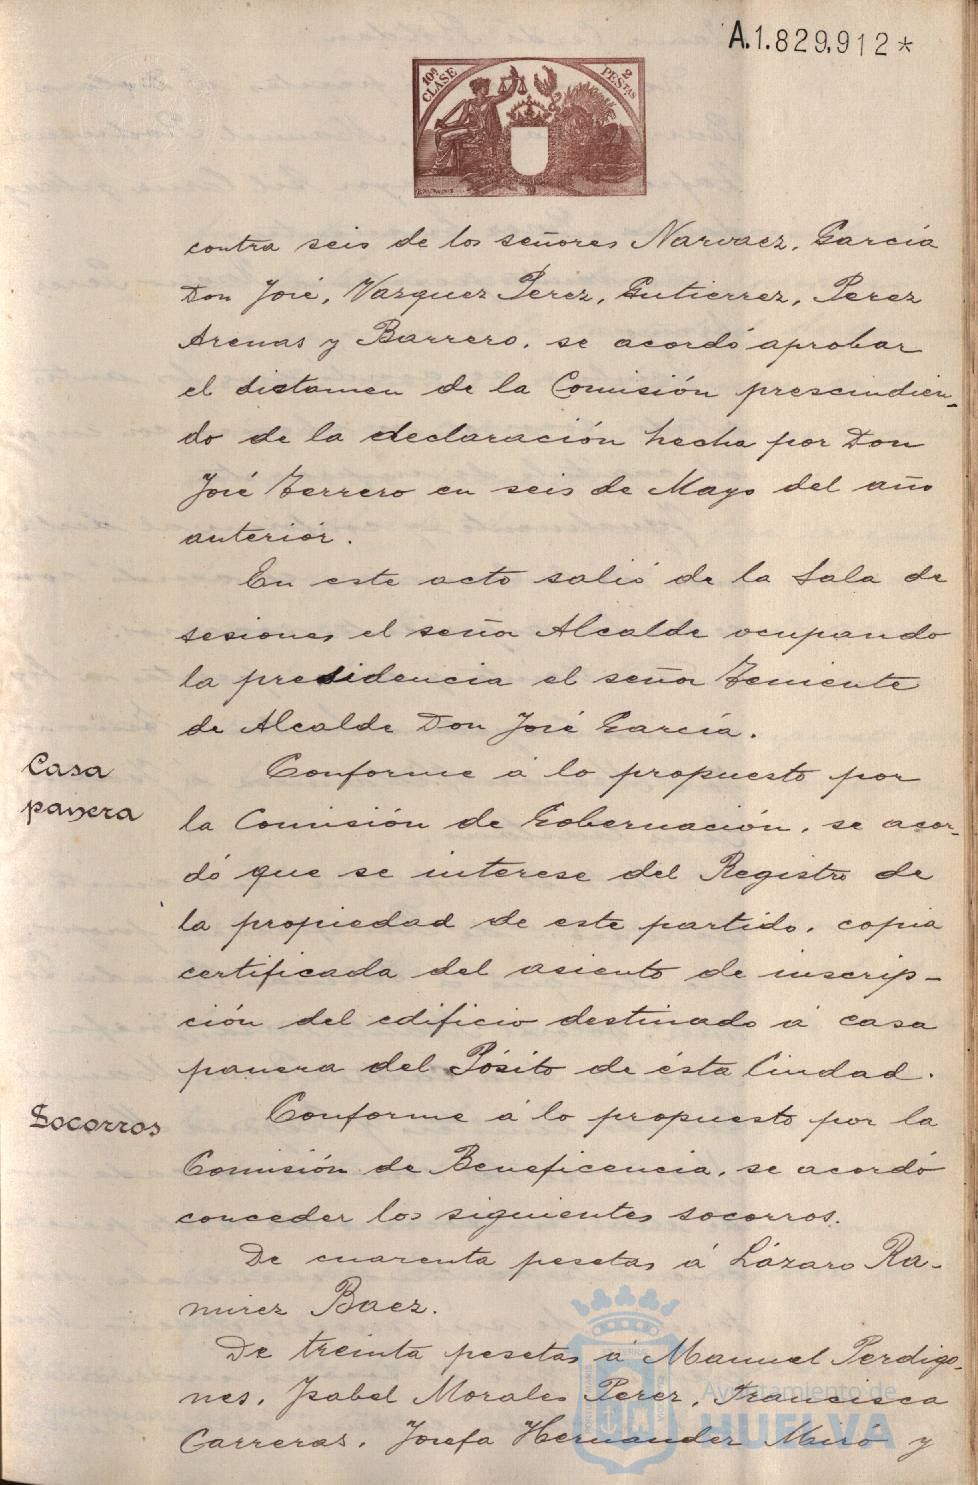 A.1.829.912*
10ª CLASE
2 PESTAS
contra seis de los señores Narvaez, García
Don José, Vazquez Perez, Gutierrez, Perez
Arenas y Barrero, se acordó aprobar
el dictamen de la Comisión prescindien-
do de la declaración hecha por Don
José Ferrero en seis de Mayo del año
anterior.
En este acto salió de la Sala de
sesiones el señor Alcalde ocupando
la presidencia el señor Teniente
de Alcalde Don José García.
Casa
panera
Conforme á lo propuesto por
la Comisión de Gobernación, se acor-
dó que se interese del Registro de
la propiedad de este partido, copia
certificada del asiento de inscrip-
ción del edificio destinado á casa
panera del Pósito de ésta Ciudad.
Socorros
Conforme á lo propuesto por la
Comisión de Beneficencia, se acordó
conceder los siguientes socorros.
De cuarenta pesetas á Lázaro Ra-
mirez Baez.
De treinta pesetas á Manuel Perdigo-
nes, Isabel Morales Perez, Francisca
Carreras, Josefa Hernandez Miró y
Ayuntamiento de
HUELVA